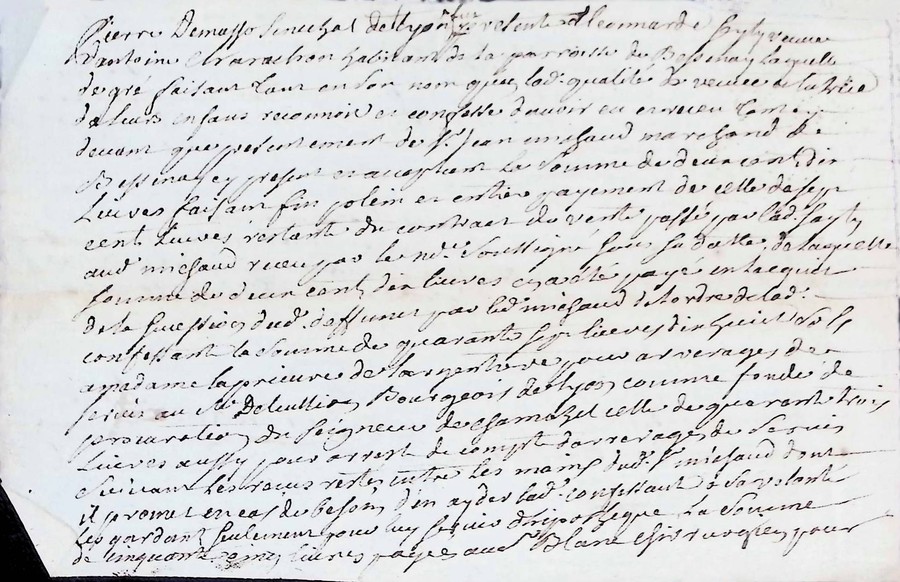 Pierre Demasso Senechal de Lyon fut presente dlle Leonnarde sayty veuve
d'antoine habitante de la parroisse de Bessenay laquelle
de gré faisant tant en son nom que lad. qualité de veuve et tutrice
de leurs enfans reconnoit et confesse d'avoir eu et receu tant cy
devant que presentement de Sr. Jean michaud marchand de
Bessenay cy present et acceptant la somme de deux cent dix
Livres faisant fin plein et entier payement de celle de sept
cent Livres restante du contract de vente passé par lad. sayty
aud. michaud receu par le nore. soussigné sous sa datte, de laquelle
somme de deux cent dix livres en a été payé en lacquit
de la succession dud. deffunct par led. michaud de lordre de lad.
confessant la somme de quarante sept livres dix huict sols
a madame la prieure de largentiere pour arverages de
servis au Sr. Bourgeois de Lyon comme fondé de
procuration du seigneur de Chamozel celle de quarante trois
Livres aussy pour arrest de compte d'arrerages de servis
suivant les receus restés entre les mains dud. Sr. michaud dont
il promet en cas de besoin d'en ayder lad. confessant a sa volonté
les gardant seulement pour luy servir d'hipotheque La somme
de cinquante cinq livres payée aud. Sr. Blanc Chirurgien pour